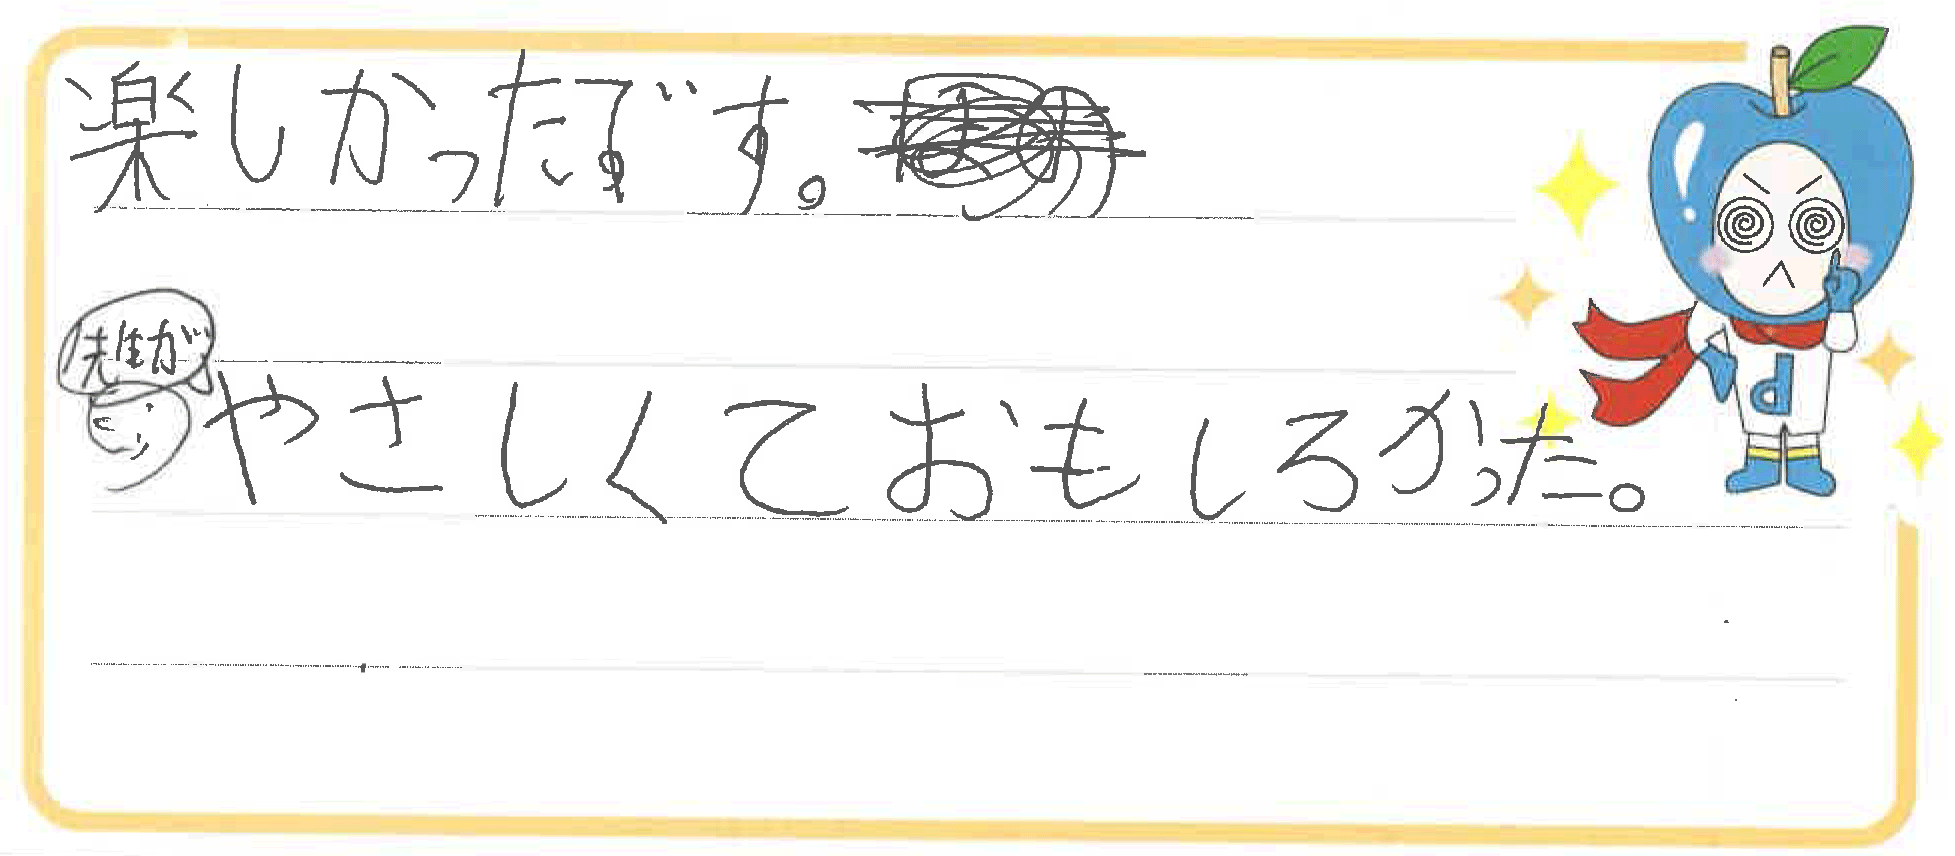 楽しかったです。
先生が
やさしくておもしろかった。
d